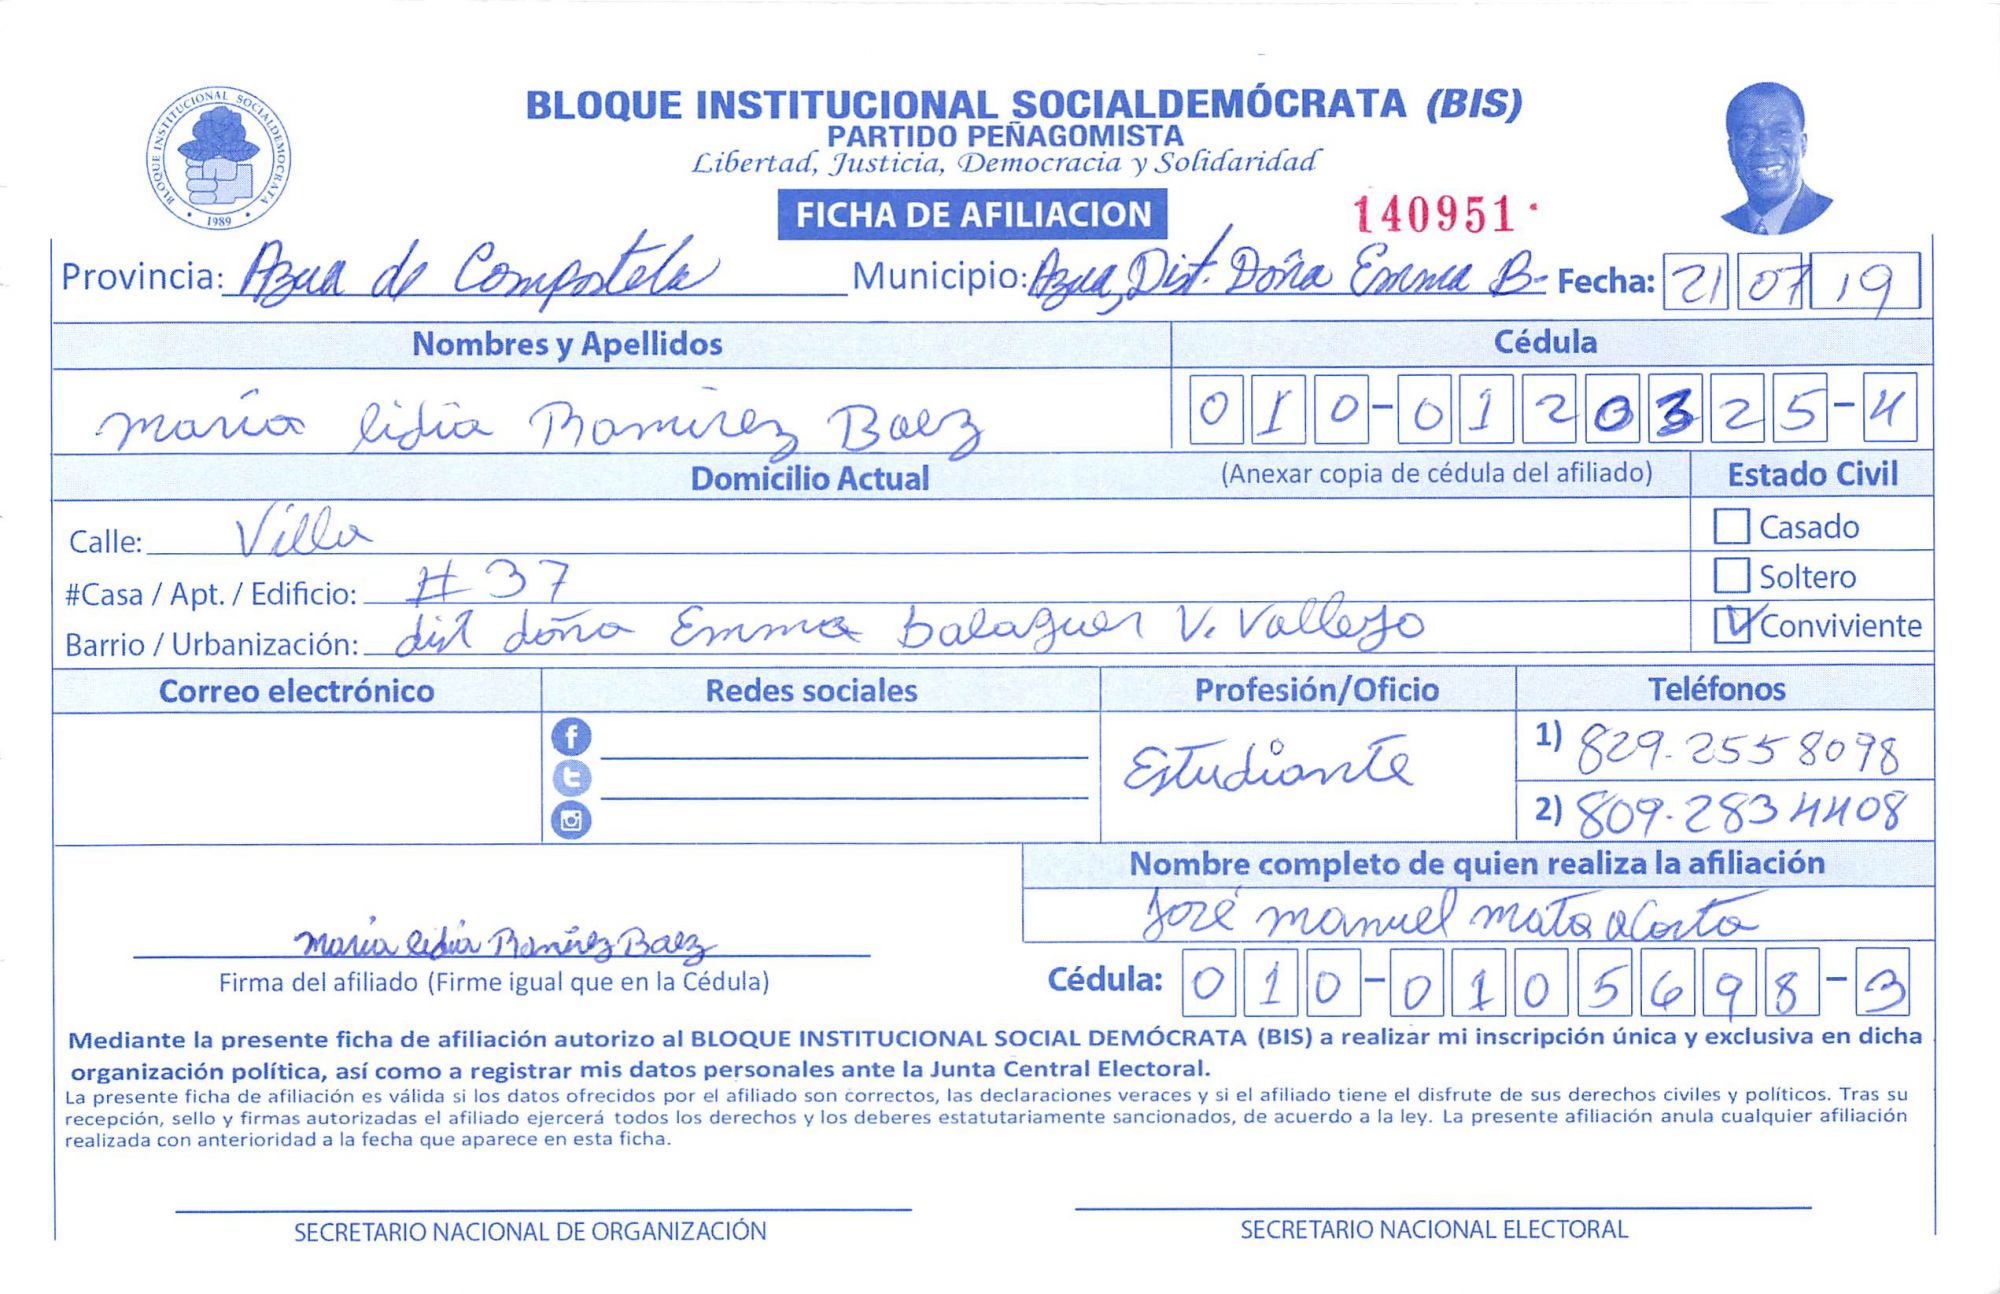 BLOQUE INSTITUCIONAL SOCIALDEMÓCRATA
1989
BLOQUE INSTITUCIONAL SOCIALDEMÓCRATA (BIS)
PARTIDO PEÑAGOMISTA
Libertad, Justicia, Democracia y Solidaridad
FICHA DE AFILIACION 140951
Provincia: Azua de Compostela Municipio: Azua, Dist. Doña Emma B- Fecha: 21 07 19
Nombres y Apellidos Cédula
maría lidia Ramirez Baez 010-0120325-4
Domicilio Actual (Anexar copia de cédula del afiliado) Estado Civil
Calle: Villa Casado
#Casa / Apt. / Edificio: # 37 Soltero
Barrio / Urbanización: dist doña Emma balaguer V. Vallejo Conviviente
Correo electrónico Redes sociales Profesión/Oficio Teléfonos
Estudiante 1) 829-255 8098
2) 809-283 4408
Nombre completo de quien realiza la afiliación
José manuel mata acosta
maría lidia Ramírez Baez
Firma del afiliado (Firme igual que en la Cédula) Cédula: 010-0105698-3
Mediante la presente ficha de afiliación autorizo al BLOQUE INSTITUCIONAL SOCIAL DEMÓCRATA (BIS) a realizar mi inscripción única y exclusiva en dicha
organización política, así como a registrar mis datos personales ante la Junta Central Electoral.
La presente ficha de afiliación es válida si los datos ofrecidos por el afiliado son correctos, las declaraciones veraces y si el afiliado tiene el disfrute de sus derechos civiles y políticos. Tras su
recepción, sello y firmas autorizadas el afiliado ejercerá todos los derechos y los deberes estatutariamente sancionados, de acuerdo a la ley. La presente afiliación anula cualquier afiliación
realizada con anterioridad a la fecha que aparece en esta ficha.
SECRETARIO NACIONAL DE ORGANIZACIÓN SECRETARIO NACIONAL ELECTORAL